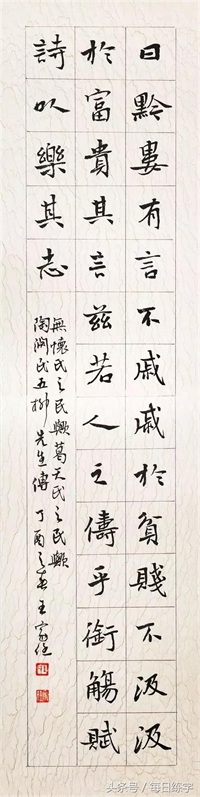 曰黔婁有言不戚戚於貧賤不汲汲
於富貴其言茲若人之儔乎銜觴賦
詩以樂其志
無懷氏之民歟葛天氏之民歟
陶淵明五柳先生傳 丁酉之春 王家
头条号 / 每日练字